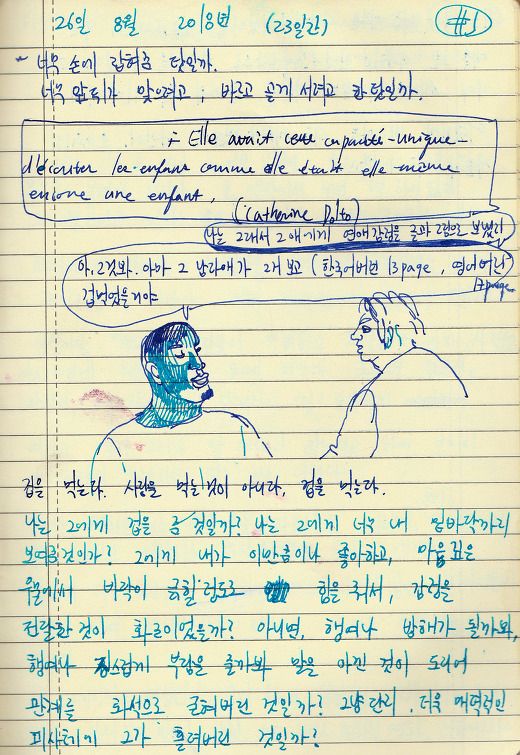 26일 8월 2018년 (23일간) #1
너무 손에 잡혀준 탓일까.
너무 앞뒤가 맞으려고, 바르고 곧게 서려고 한 탓일까.
: Elle avait cette capacité-unique-
d'écouter les enfants comme elle était elle-même
encore une enfant.
(Catherine Dolto)
나는 그래서 그 애에게 연애감정을 글과 그림으로 보냈어
아, 그것봐. 아마 그 남자애가 그거 보고 (한국어버전 13page, 영어버전
13page
겁먹었을거야
겁을 먹는다. 사람을 먹는 것이 아니다. 겁을 먹는다.
나는 그에게 겁을 준 것일까? 나는 그에게 너무 내 밑바닥까지
보여준것인가? 그에게 내가 이만큼이나 좋아하고, 마음 깊은
우물에서 바닥이 긁힐 정도로 힘을 줘서, 감정을
전달한 것이 화근이었을까? 아니면, 행여나 방해가 될까봐,
행여나 부담을 줄까봐 말을 아낀 것이 도리어
관계를 화석으로 굳혀버린 것일까? 그냥 단지, 더욱 매력적인
피사체에 그가 홀려버린 것일까?